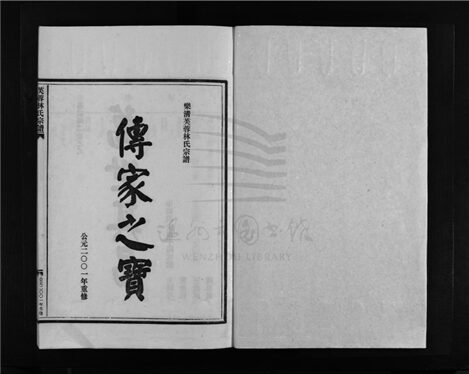 樂清芙蓉林氏宗譜
傳家之寶
公元二〇〇一年重修
芙蓉林氏宗譜
溫州市圖書館
WENZHOU LIBRARY